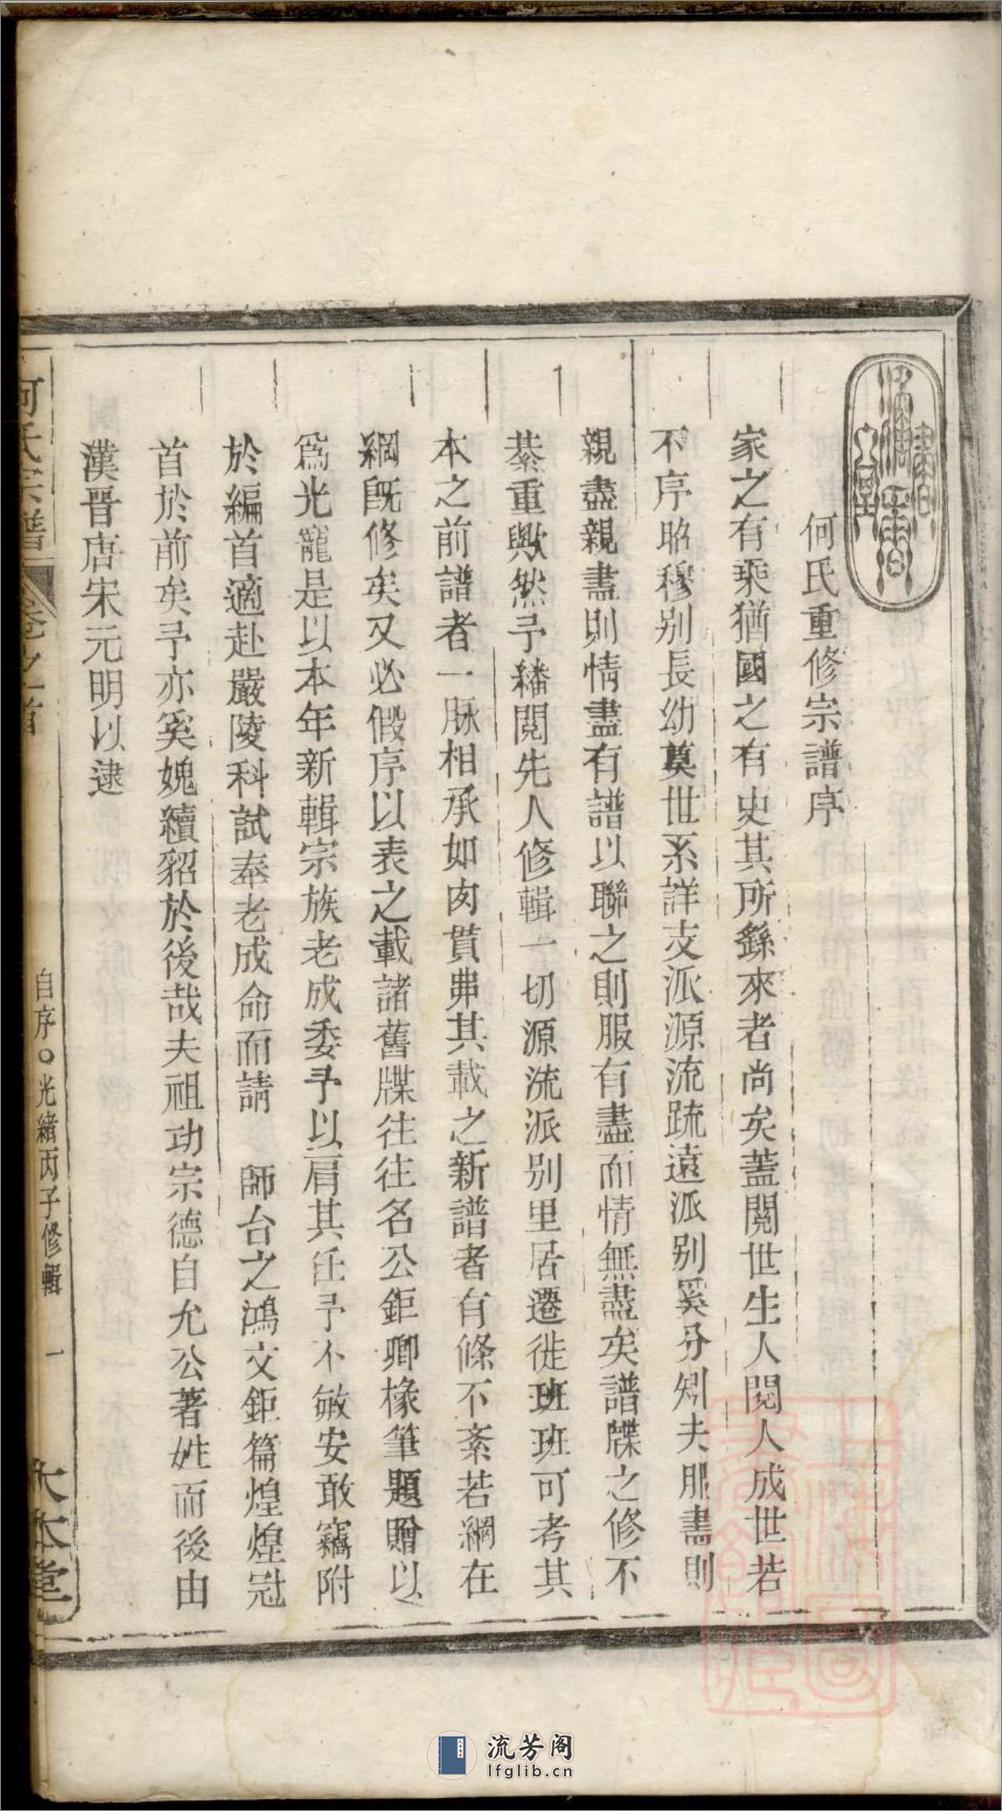 何氏重修宗譜序
家之有乘猶國之有史其所繇來者尚矣蓋閱世生人閱人成世若
不序昭穆別長幼奠世系詳支派源流疏遠派別奚分矧夫服盡則
親盡親盡則情盡有譜以聯之則服有盡而情無盡矣譜牒之修不
綦重歟然予繙閱先人修輯一切源流派别里居遷徙班班可考其
本之前譜者一脉相承如肉貫弗其載之新譜者有條不紊若網在
綱旣修矣又必假序以表之載諸舊牒往往名公鉅卿椽筆題贈以
爲光寵是以本年新輯宗族老成委予以肩其任予不敏安敢竊附
於編首適赴嚴陵科試奉老成命而請 師台之鴻文鉅篇煌煌冠
首於前矣予亦奚媿續貂於後哉夫祖功宗德自允公著姓而後由
漢晋唐宋元明以逮
何氏宗譜 卷之首 自序○光緒丙子修輯 一 大本堂
流芳阁
lfglib.cn